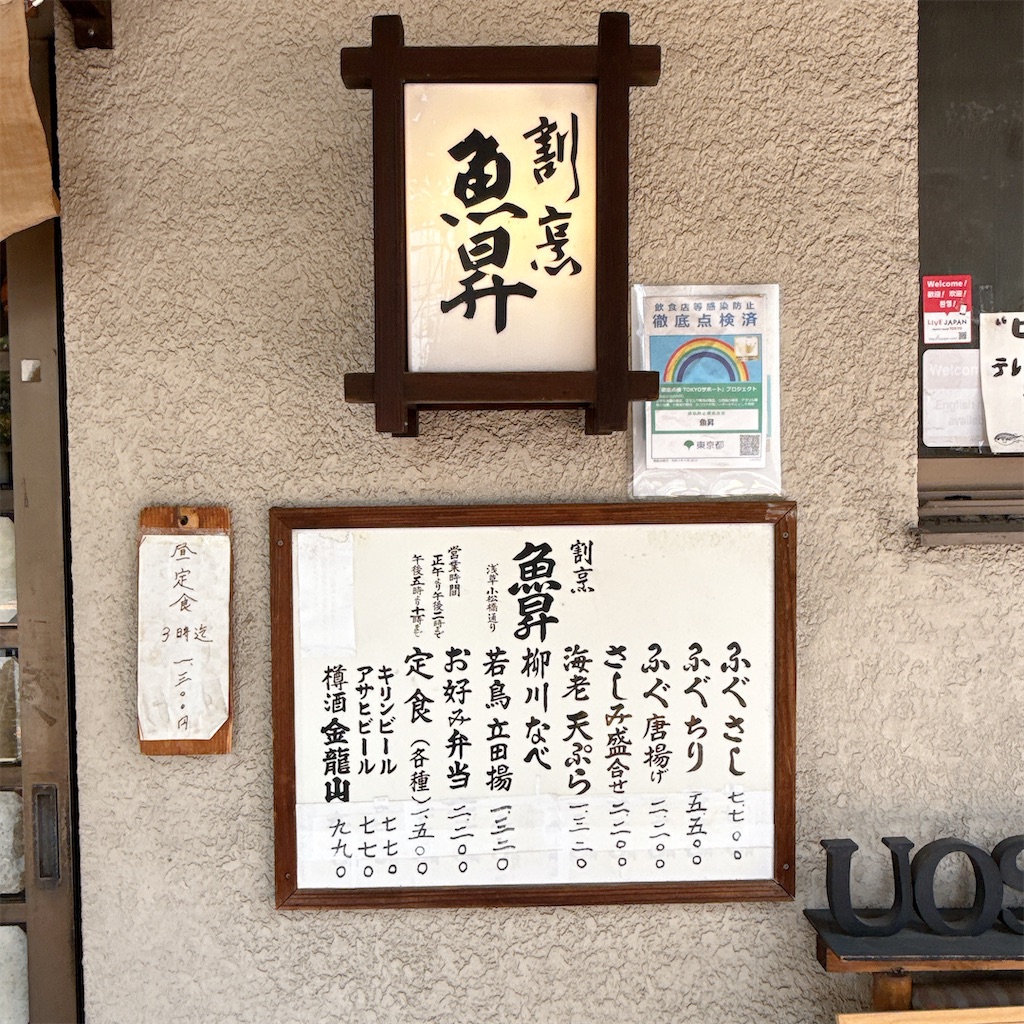 割烹
魚昇
飲食店等感染防止
徹底点検済
TOKYOサポート」プロジェクト
魚昇
東京都
Welcome!
歓迎! 欢迎!
환영!
LIVE JAPAN
テレ
昼定食
3時迄
一、一三〇円
割烹
魚昇
浅草小松橋通り
営業時間
正午より午後二時まで
午後五時より十時まで
ふぐさし 七、七〇〇
ふぐちり 五、五〇〇
ふぐ唐揚げ 二、二〇〇
さしみ盛合せ 二、二〇〇
海老天ぷら 一、三二〇
柳川なべ
若鳥立田揚 一、三二〇
お好み弁当 二、二〇〇
定食(各種) 一、五〇〇
キリンビール 七七〇
アサヒビール 七七〇
樽酒金龍山 九九〇
UOS